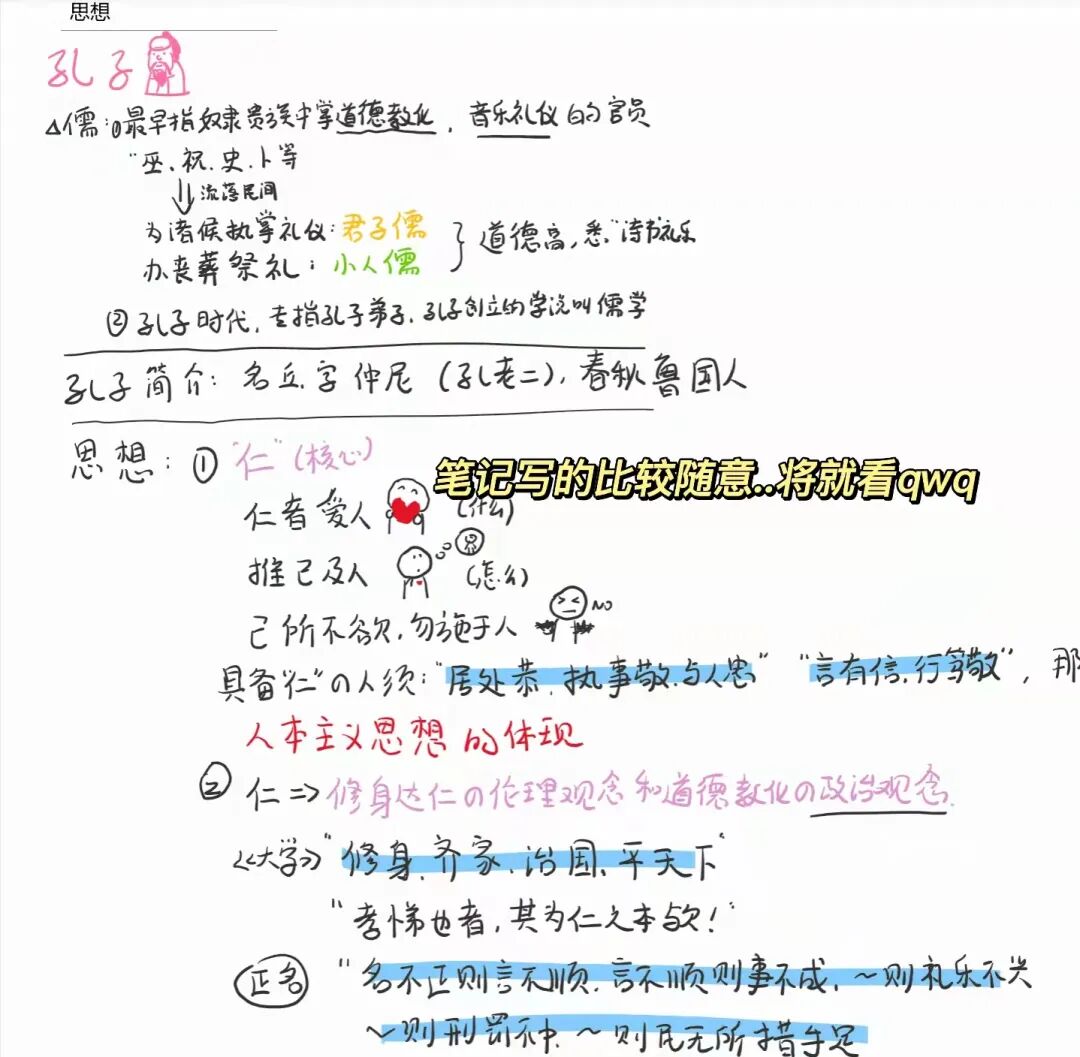 思想
孔子
△儒:①最早指奴隶贵族中掌道德教化,音乐礼仪的官员
"巫、祝、史、卜等
流落民间
为诸候执掌礼仪:君子儒
办丧葬祭礼:小人儒
道德高,悉"诗书礼乐
②孔子时代,专指孔子弟子,孔子创立的学说叫儒学
孔子简介:名丘,字仲尼(孔老二),春秋鲁国人
思想:①"仁"(核心)
笔记写的比较随意..将就看qwq
仁者爱人 (什么)
推己及人 (怎么)
己所不欲,勿施于人 NO
具备"仁"の人须:"居处恭,执事敬,与人忠" "言有信,行笃敬",那
人本主义思想的体现
② 仁=>修身达仁の伦理观念和道德教化の政治观念.
《大学》"修身、齐家、治国、平天下"
"孝悌也者,其为仁之本欤!"
正名 "名不正则言不顺,言不顺则事不成,~则礼乐不兴
~则刑罚不中,~则民无所措手足